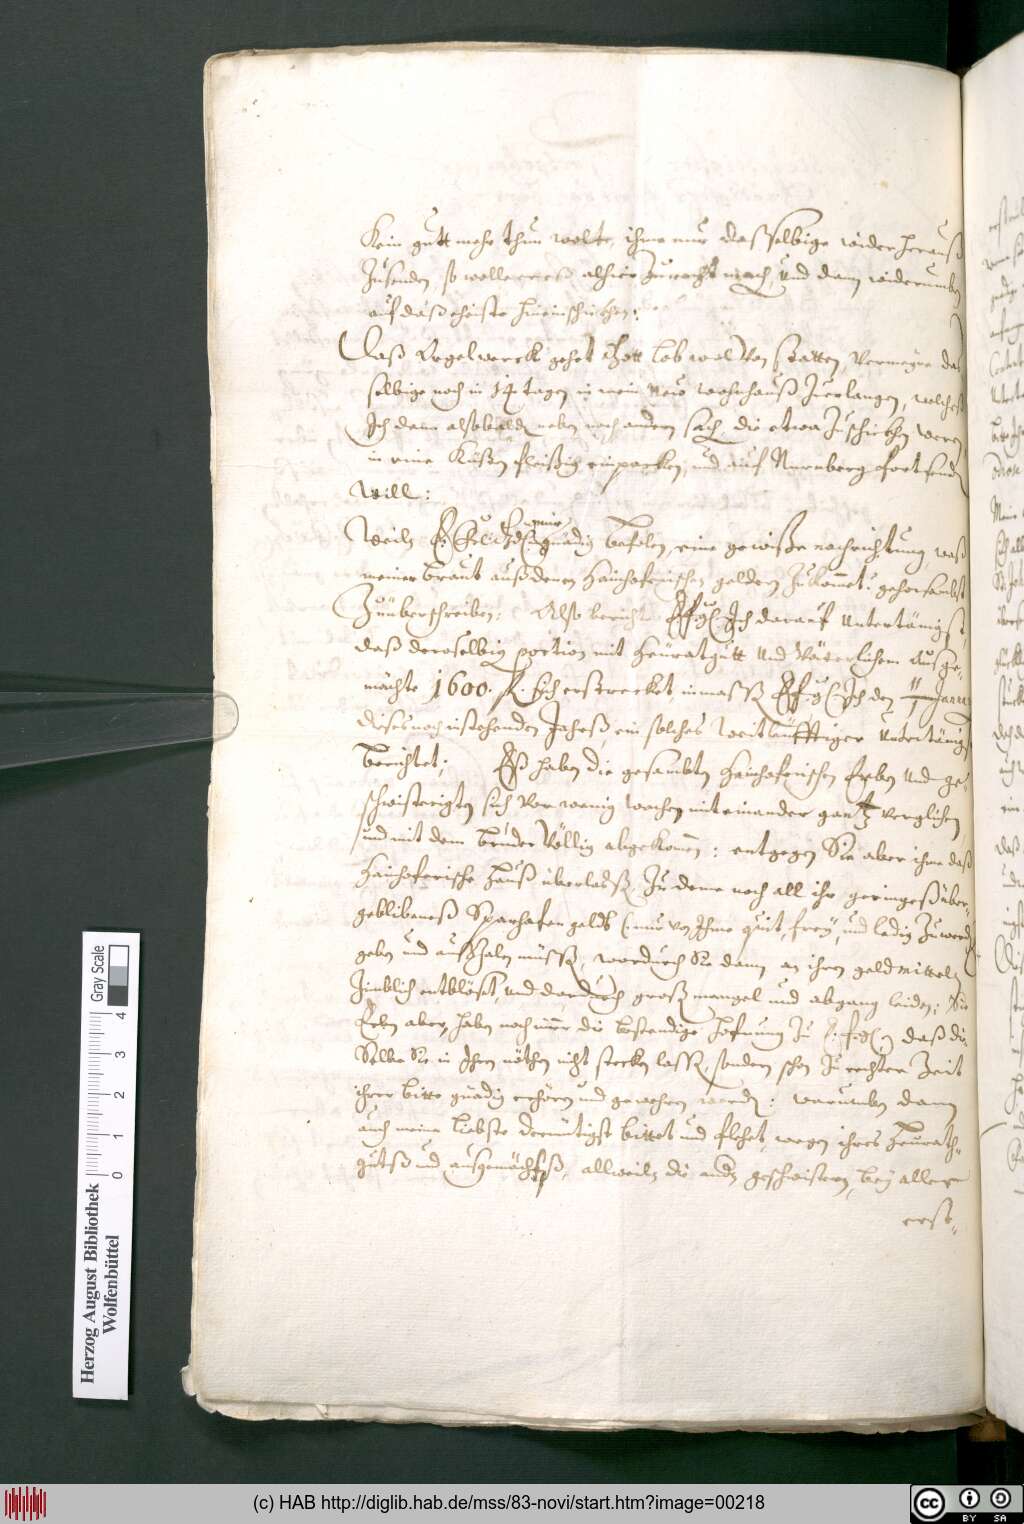 Kein gutt mehr thun wolte, ihme nur dasselbige wider herauß
Zusenden, so wolle erreß alhier Zurecht mach, und dann widerumben
auf daß ehinste hineinschickhen:
Daß Orgelwerck gehet Gott lob wol von statten, vermayne das
selbige noch in 14 tagen in mein Neus wohnhauß Zuerlangen, welches
Ich dann alßbald neben noch andern sach, die etwa Zuschickhen weren
in eine Küsten fleißig einpacken, und auf Nurnberg fortsend
will:
Weiln E. mir gnädig befolen, eine gewiße nachrichtung, waß
meiner Braut auß denen Hainhoferischen geldern Zukommet: gehorsambst
Zuüberschreiben: Also bericht Ich darauf Untertänigst,
daß deroselbig portion mit Heüratgutt und Väterlichem Außge-
mächte 1600. fl. sich erstrecket, inmaß Ich den 11/1 Januar
dises noch instehenden Jahrß, ein solches Weitläufftiger Untertänig
berichtet; Eß haben die gesambten Hainhoferischen Erben und ge-
schwistrigten sich vor wenig wochen miteinander gantz verglichen
und mit dem bruder völlig abgekommen: entgegen Sie aber ihme daß
Hainhoferische Hauß überlaß, Zu deme noch all ihr geringeß über-
geblibeneß Sparhafen geldt (: nur von Ihme quit, frey, und ledig Zuwerd
geben und außzalen müß, wordurch Sie dann an ihren geldmitteln
Zimblich entblöst, und dardurch groß mangel und abgang leiden: Die
Erbn aber, haben noch immer die bestendige hofnung Zu E. f. g. daß die-
Selbe Sie in Ihren nöthen nicht stecken lass, sondern schon Zu rechter Zeit
ihrer bitte gnädig erhörn und gewehren werd: warumben dann
auch meine Liebste demütigst bittet und flehet, wegen ihres Heurath-
gutß und außgemächtß, allweiln die andern geschwistern, bey aller
erst-
Herzog August Bibliothek
Wolfenbüttel
0 1 2 3 4
Gray Scale
(c) HAB http://diglib.hab.de/mss/83-novi/start.htm?image=00218
cc BY SA